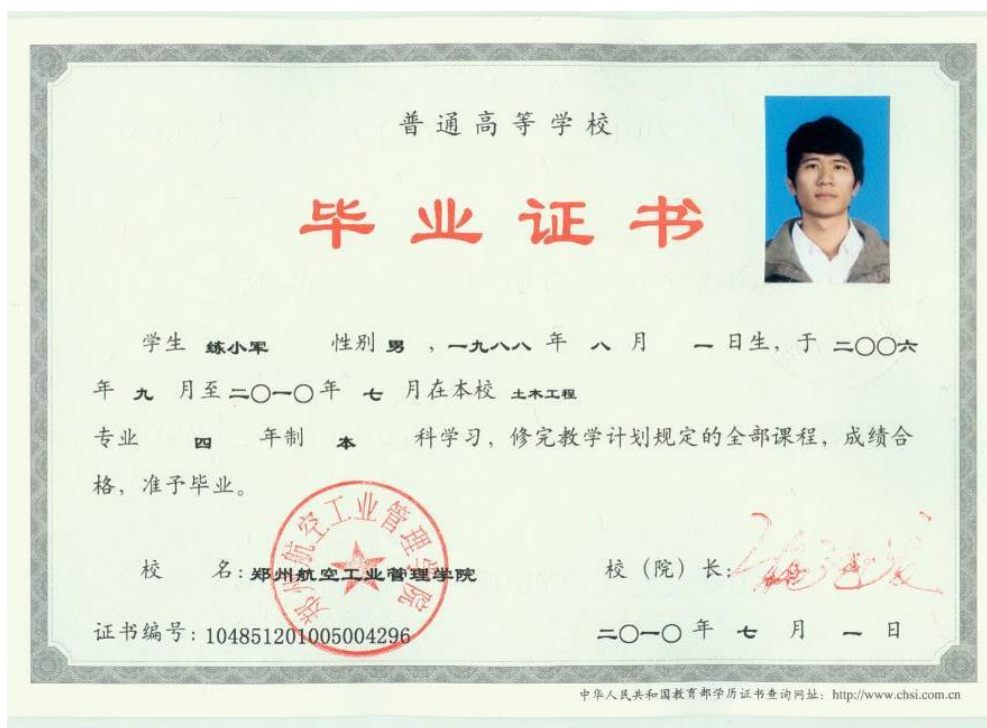 普通高等学校
毕业证书
学生 练小军 性别 男 ，一九八八 年 八 月 一 日生，于 二〇〇六
年 九 月至 二〇一〇 年 七 月在本校 土木工程
专业 四 年制 本 科学习，修完教学计划规定的全部课程，成绩合
格，准予毕业。
郑州航空工业管理学院
校 名：郑州航空工业管理学院 校（院）长：
证书编号：104851201005004296 二〇一〇 年 七 月 一 日
中华人民共和国教育部学历证书查询网址：http://www.chsi.com.cn